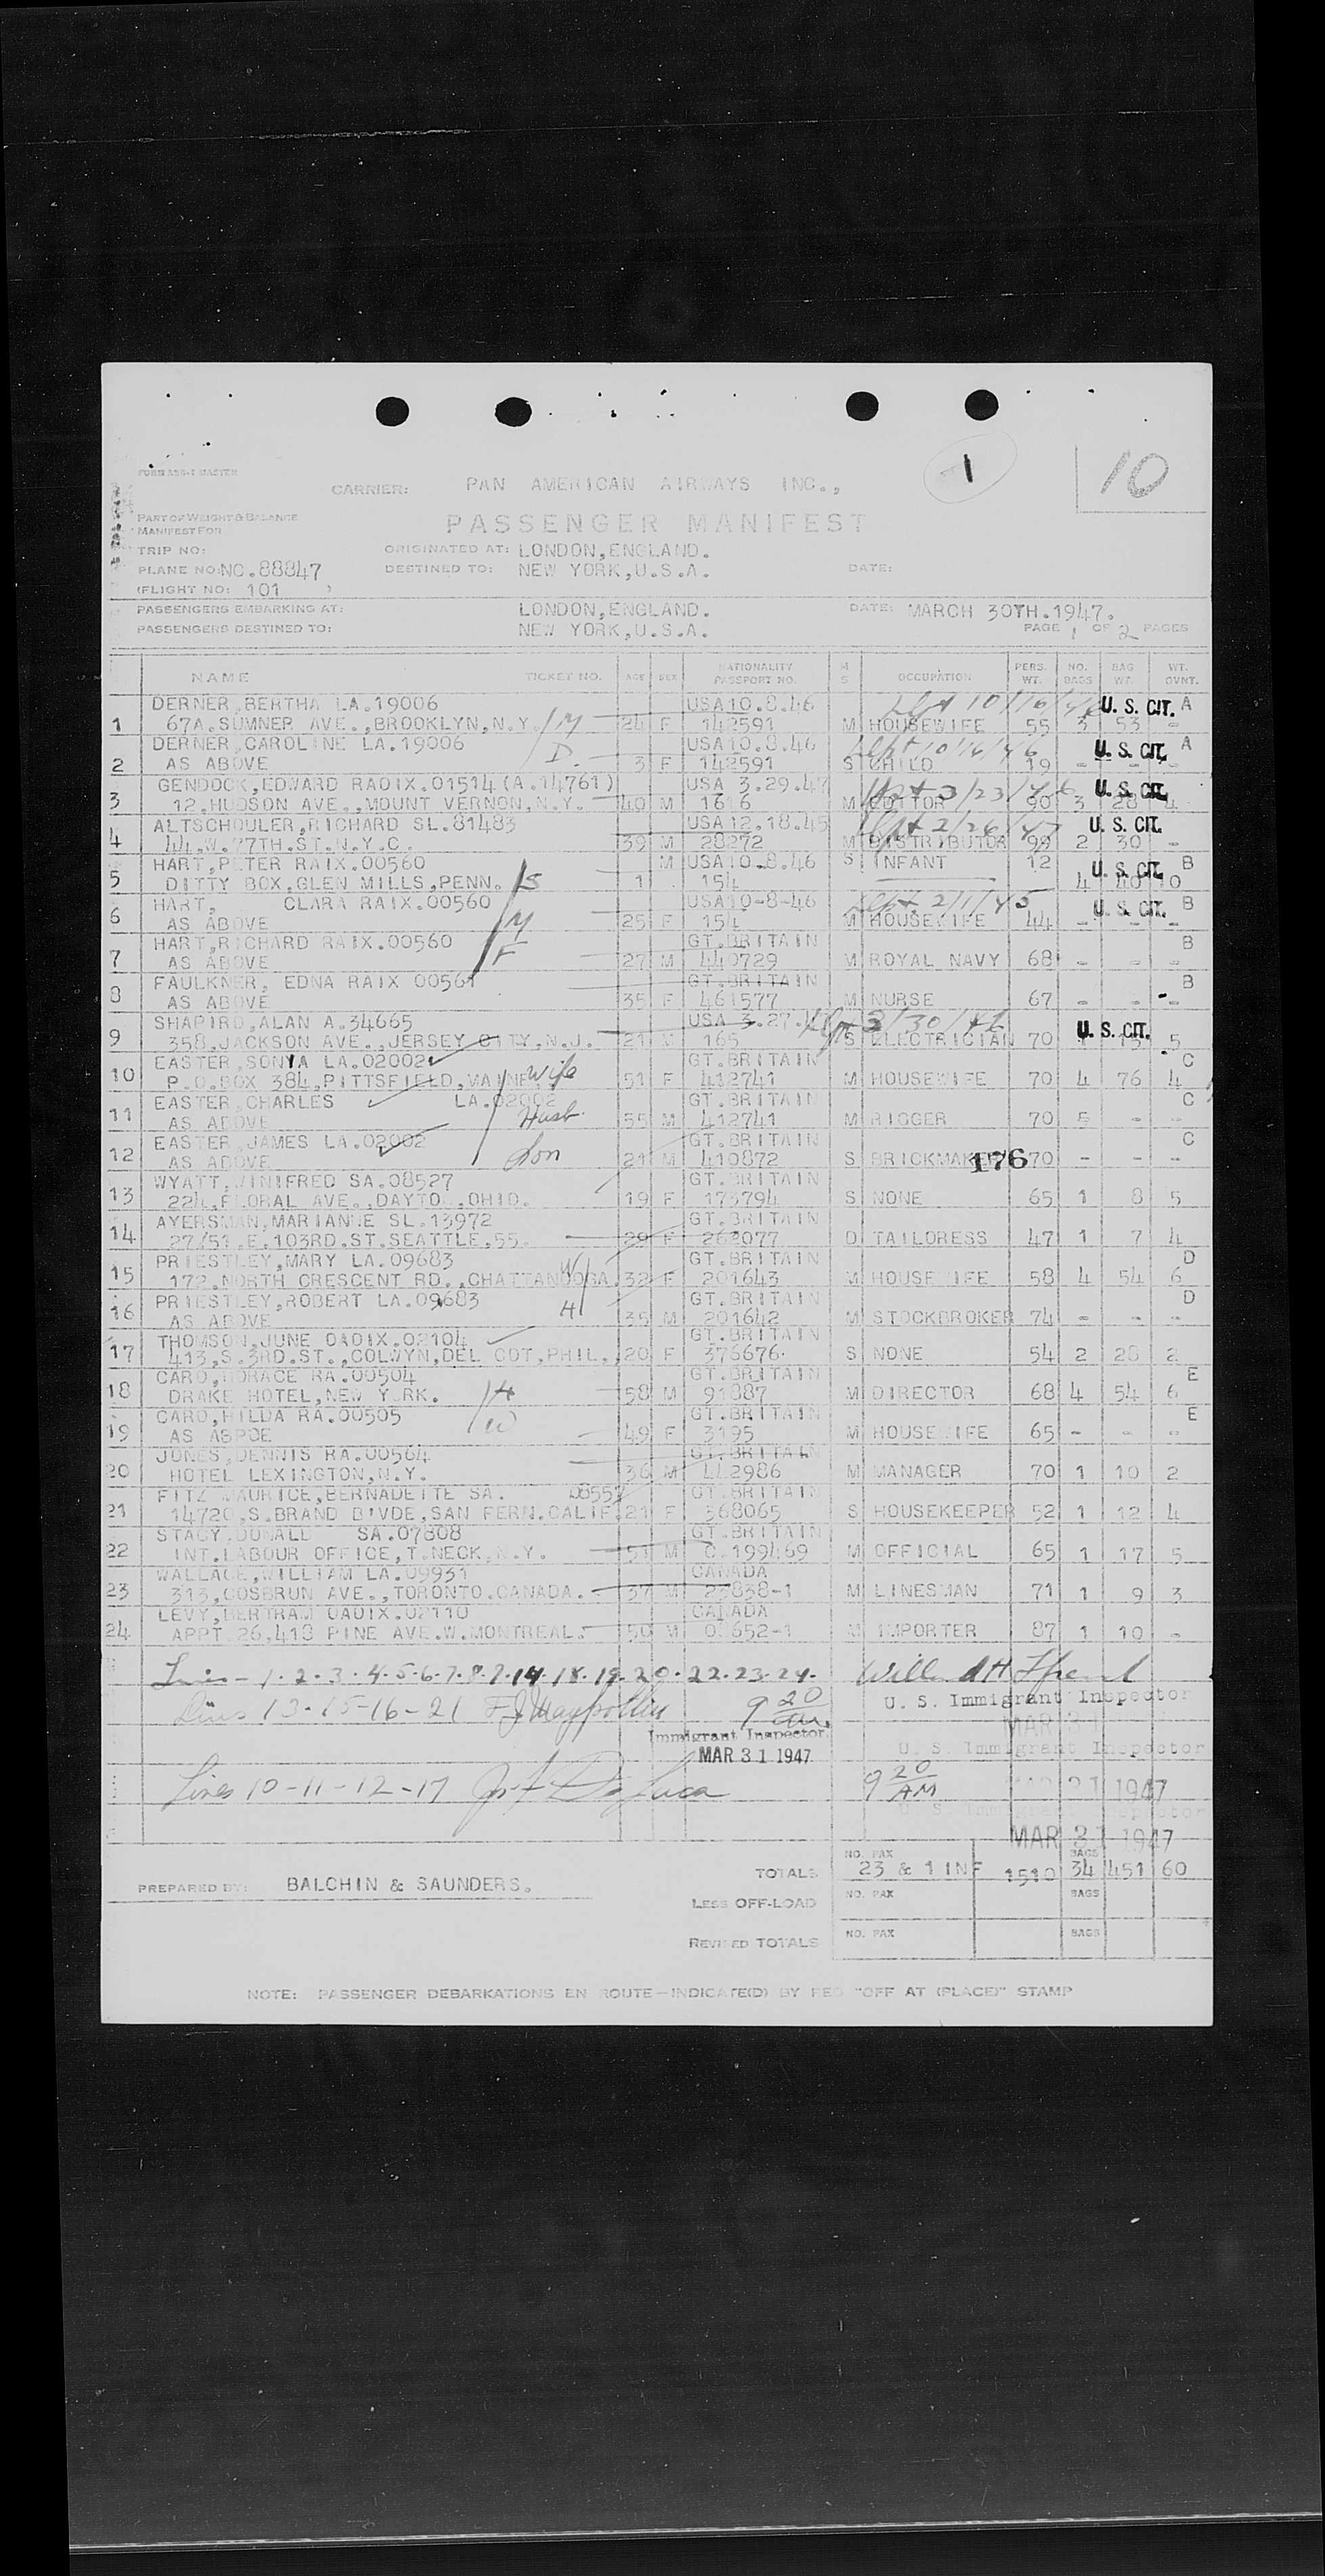 1
10
FORM ASS-1 MASTER
CARRIER: PAN AMERICAN AIRWAYS INC.,
PART OF WEIGHT & BALANCE
MANIFEST FOR
PASSENGER MANIFEST
TRIP NO: ORIGINATED AT: LONDON,ENGLAND.
PLANE NO: NC.88847 DESTINED TO: NEW YORK,U.S.A. DATE:
(FLIGHT NO: 101 )
PASSENGERS EMBARKING AT: LONDON,ENGLAND. DATE: MARCH 30TH.1947.
PASSENGERS DESTINED TO: NEW YORK,U.S.A. PAGE 1 OF 2 PAGES
NAME TICKET NO. AGE SEX NATIONALITY PASSPORT NO. M S OCCUPATION PERS. WT. NO. BAGS BAG WT. WT. OVNT.
DERNER,BERTHA LA.19006 USA10.8.46 10/16/46 U. S. CIT. A
1 67A.SUMNER AVE.,BROOKLYN,N.Y. M 24 F 142591 M HOUSEWIFE 55 3 53 -
DERNER,CAROLINE LA.19006 USA10.8.46 10/16/46 U. S. CIT. A
2 AS ABOVE D. 3 F 142591 S CHILD 19 - - -
GENDOCK,EDWARD RAOIX.01514(A.14761) USA 3.29.47 3/23/46 U. S. CIT.
3 12.HUDSON AVE.,MOUNT VERNON,N.Y. 40 M 1616 M 90 3 28 4
ALTSCHOULER,RICHARD SL.81483 USA12.18.45 2/26/47 U. S. CIT.
4 44.W.77TH.ST.N.Y.C. 39 M 28272 M DISTRIBUTOR 99 2 30 -
HART,PETER RAIX.00560 M USA10.8.46 S INFANT 12 U. S. CIT. B
5 DITTY BOX,GLEN MILLS,PENN. S 1 154 4 40 10
HART, CLARA RAIX.00560 USA10-8-46 2/1/45 U. S. CIT. B
6 AS ABOVE M 25 F 154 M HOUSEWIFE 44 - - -
HART,RICHARD RAIX.00560 GT.BRITAIN B
7 AS ABOVE F 27 M 440729 M ROYAL NAVY 68 - - -
FAULKNER, EDNA RAIX 00561 GT.BRITAIN B
8 AS ABOVE 35 F 461577 M NURSE 67 - - -
SHAPIRO,ALAN A.34665 USA 3.27. U. S. CIT.
9 358.JACKSON AVE.,JERSEY CITY,N.J. 21 M 165 S ELECTRICIAN 70 1 15 5
EASTER,SONYA LA.02002 GT.BRITAIN C
10 P.O.BOX 384,PITTSFIELD,MAINE Wife 51 F 412741 M HOUSEWIFE 70 4 76 4
EASTER,CHARLES LA.02002 GT.BRITAIN C
11 AS ABOVE Husb. 55 M 412741 M RIGGER 70 5 - -
EASTER,JAMES LA.02002 GT.BRITAIN C
12 AS ABOVE Son 21 M 410872 S BRICKMAKER 176 70 - - -
WYATT,WINIFRED SA.08527 GT.BRITAIN
13 224.FLORAL AVE.,DAYTO.,OHIO. 19 F 173794 S NONE 65 1 8 5
AYERSMAN,MARIANNE SL.13972 GT.BRITAIN
14 27/51.E.103RD.ST.SEATTLE,55. 29 F 262077 D TAILORESS 47 1 7 4
PRIESTLEY,MARY LA.09683 GT.BRITAIN D
15 172.NORTH CRESCENT RD.,CHATTANOOGA. W 32 F 201643 M HOUSEWIFE 58 4 54 6
PRIESTLEY,ROBERT LA.09683 GT.BRITAIN D
16 AS ABOVE H 35 M 201642 M STOCKBROKER 74 - - -
THOMSON,JUNE OAOIX.02104 GT.BRITAIN
17 413,S.3RD.ST.,COLWYN,DEL COT,PHIL., 20 F 376676 S NONE 54 2 28 2
CARO,HORACE RA.00504 GT.BRITAIN E
18 DRAKE HOTEL,NEW YORK. H 58 M 91887 M DIRECTOR 68 4 54 6
CARO,HILDA RA.00505 GT.BRITAIN E
19 AS ABPOE W 49 F 3195 M HOUSEWIFE 65 - - -
JONES,DENNIS RA.00564 GT.BRITAIN
20 HOTEL LEXINGTON,N.Y. 36 M 442986 M MANAGER 70 1 10 2
FITZ MAURICE,BERNADETTE SA. 08557 GT.BRITAIN
21 14720.S.BRAND B'VDE,SAN FERN.CALIF. 21 F 368065 S HOUSEKEEPER 52 1 12 4
STACY,DONALD SA.07808 GT.BRITAIN
22 INT.LABOUR OFFICE,T.NECK,N.Y. 51 M C.199469 M OFFICIAL 65 1 17 5
WALLACE,WILLIAM LA.09931 CANADA
23 313,COSBRUN AVE.,TORONTO.CANADA. 37 M 23838-1 M LINESMAN 71 1 9 3
LEVY,BERTRAM OAOIX.02110 CANADA
24 APPT.26,418 PINE AVE.W.MONTREAL. 50 M M IMPORTER 87 1 10 -
1-2-3-4-5-6-7-8-9-14-18-19-20-22-23-24-
U. S. Immigrant Inspector
Lines 13-15-16-21 9 20 am.
Immigrant Inspector
MAR 31 1947
U. S. Immigrant Inspector
Lines 10-11-12-17 9 20 AM
MAR 31 1947
MAR 31 1947
TOTALS NO. PAX 23 & 1 INF 1510 BAGS 34 451 60
PREPARED BY: BALCHIN & SAUNDERS.
LESS OFF-LOAD NO. PAX BAGS
REVISED TOTALS NO. PAX BAGS
NOTE: PASSENGER DEBARKATIONS EN ROUTE—INDICATE(D) BY RED "OFF AT (PLACE)" STAMP